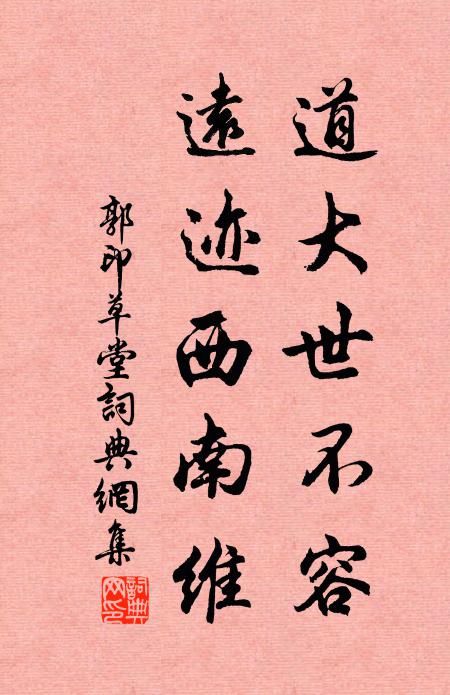 道大世不容
遠迹西南維
郭印草堂詞典網集
詞典網印